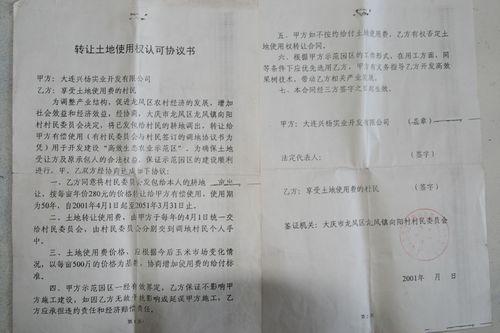 转让土地使用权认可协议书
甲方：大连兴杨实业开发有限公司
乙方：享受土地使用费的村民
为调整产业结构，促进龙凤区农村经济的发展，增加
社会效益和经济效益，经协商，大庆市龙凤区龙凤镇向阳
村村民委员会决定，将已发包给村民的耕地调出，转让给
甲方有偿使用（有村民委员会与村民签订的调地协议书为
凭）用于开发建设"高效生态农业示范区"。为确保土地
受让方及原承包人的合法权益，保证示范园区的建设顺利
进行。甲、乙双方经协商达成如下协议：
一、乙方同意将村民委员会发包给本人的耕地 亩出
让，按每亩年价280元的价格转让给甲方有偿使用，使用期
为50年，自2001年4月1日起至2051年3月31日止。
二、土地转让使用费，由甲方于每年的4月1日统一交
给村民委员会，由村民委员会分别交到调地村民个人手
中。
三、土地使用费价格，应根据今后玉米市场变化情
况，以每亩500斤的价格为基数，协商增加使用费的给付标
准。
四、甲方示范园区一经有效界定，乙方保证不影响甲
方施工建设，如因乙方无故干扰影响或延误甲方施工，乙方
应承担违约责任和经济赔偿责任。
第1页
五、甲方如不按约给付土地使用费，乙方有权否定土
地使用权转让合同。
六、根据甲方示范园区的工作形式，在用工方面，同
等条件下应优先选用乙方，甲方有义务指导乙方开发高效
果树技术，带动乙方相关产业发展。
七、本合同经三方签字之日起生效。
甲方：大连兴杨实业开发有限公司 （盖章）
法定代表人： （签字）
乙方：享受土地使用费的村民 （签字）
签证机关：大庆市龙凤区龙凤镇向阳村村民委员会
2001年 月 日
第2页